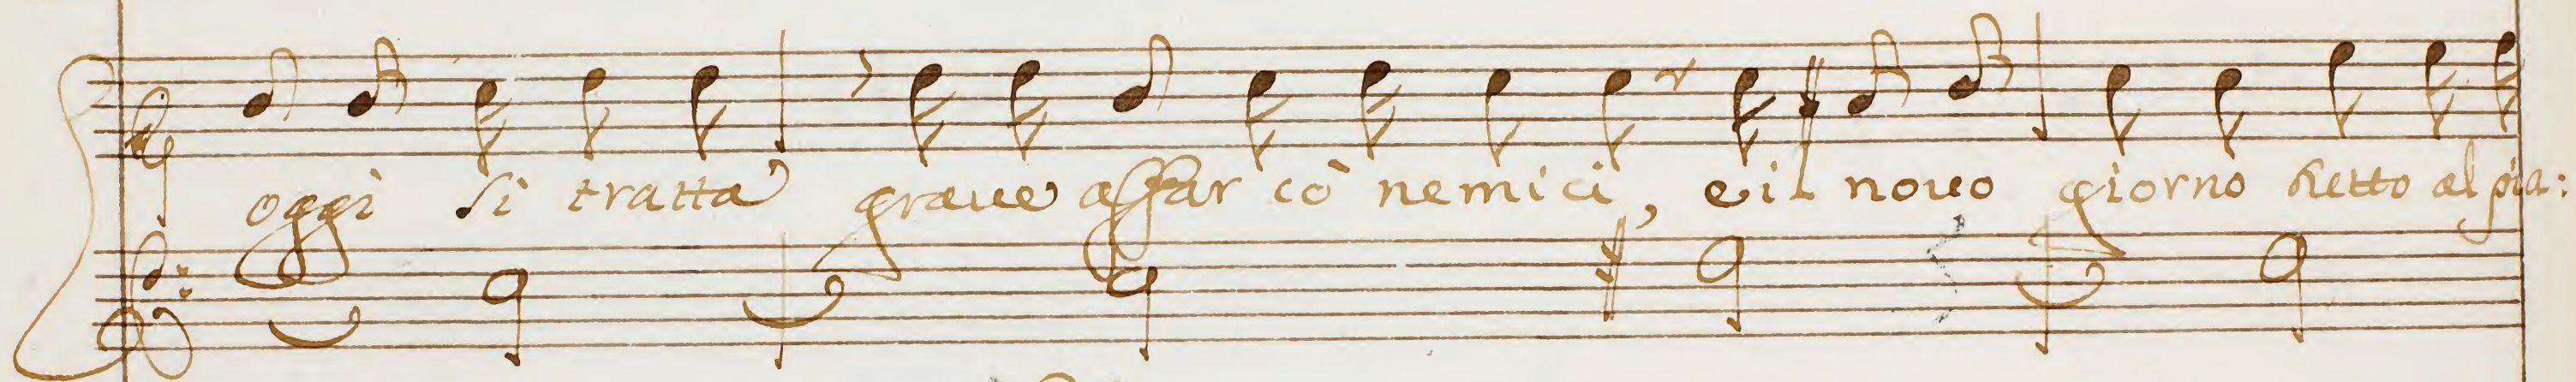 oggi si tratta grave affar cò nemici, e il novo giorno retto al pia: